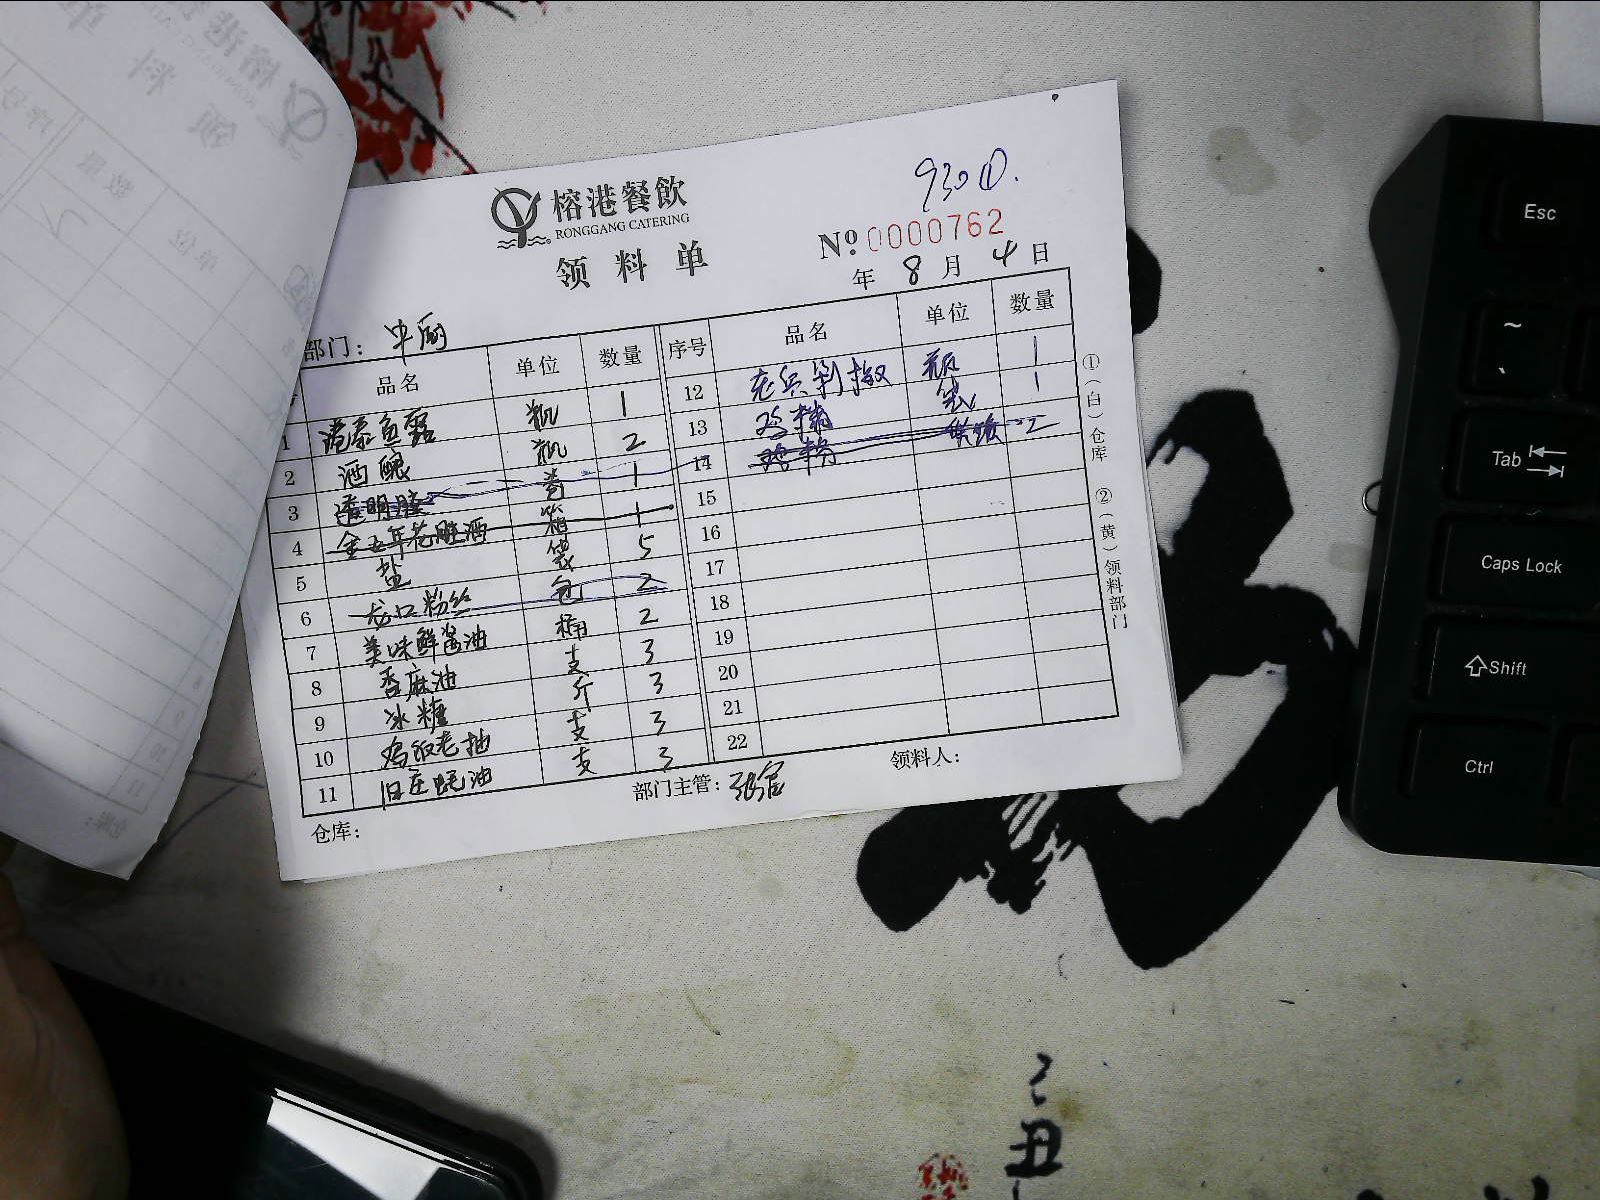 930①.
榕港餐飲
RONGGANG CATERING
领料单
№ 0000762
年 8 月 4 日
部门： 中厨
品名 单位 数量 序号 品名 单位 数量
1 港泰鱼露 瓶 1
2 酒酿 瓶 2
3 透明胶 卷 1
4 金五年花雕酒 箱 1
5 盐 袋 5
6 龙口粉丝 包 2
7 美味鲜酱油 桶 2
8 香麻油 支 3
9 冰糖 斤 3
10 鸡饭老抽 支 3
11 旧庄蚝油 支 3
12 剁椒 瓶 1
13 鸡精 袋 1
14 鸡粉
15
16
17
18
19
20
21
22
仓库：
部门主管：
领料人：
①（白）仓库 ②（黄）领料部门
Esc
~
Tab
Caps Lock
Shift
Ctrl
己丑